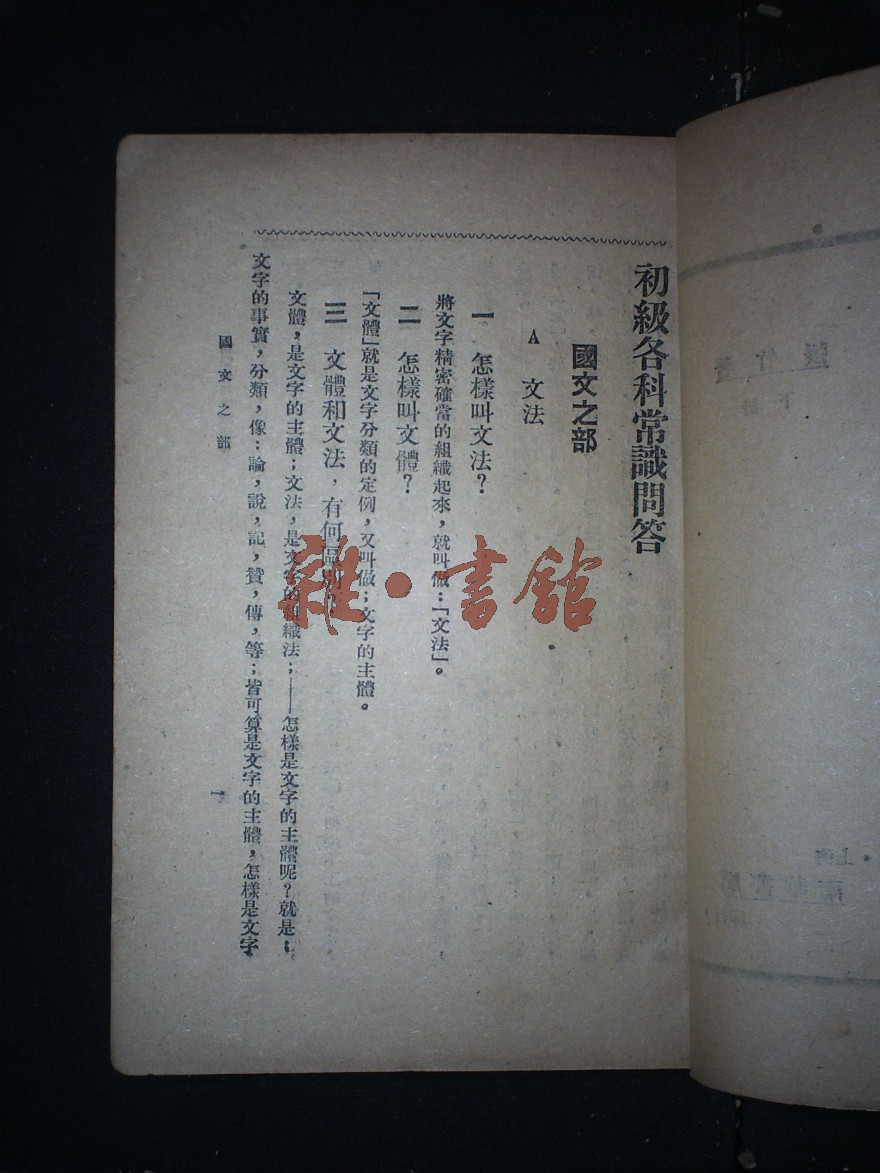 初級各科常識問答
國文之部
A 文法
一 怎樣叫文法？
將文字精密確當的組織起來，就叫做：「文法」。
二 怎樣叫文體？
「文體」就是文字分類的定例，又叫做；文字的主體。
三 文體和文法，有何區別？
文體，是文字的主體；文法，是文字的組織法；——怎樣是文字的主體呢？就是；
文字的事實，分類，像：論，說，記，贊，傳，等；皆可算是文字的主體，怎樣是文字
國文之部
一
雜·書館